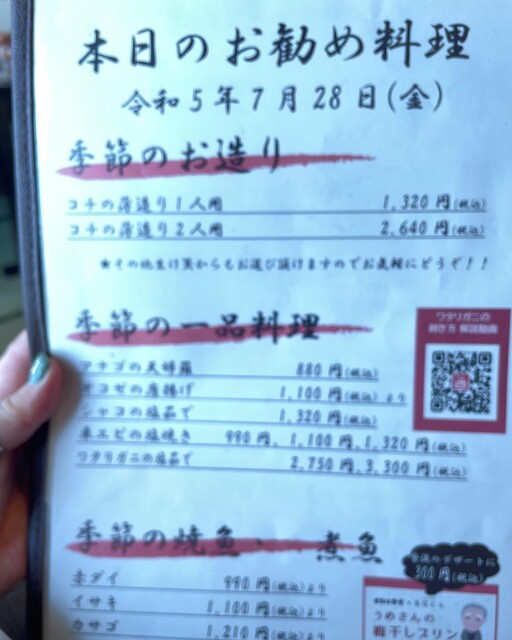 本日のお勧め料理
令和5年7月28日(金)
季節のお造り
コチの薄造り1人用 1,320円(税込)
コチの薄造り2人用 2,640円(税込)
★その他生け簀からもお選び頂けますのでお気軽にどうぞ!!
季節の一品料理
アナゴの天婦羅 880円(税込)
オコゼの唐揚げ 1,100円(税込)より
シャコの塩茹で 1,320円(税込)
車エビの塩焼き 990円、1,100円、1,320円(税込)
ワタリガニの塩茹で 2,750円、3,300円(税込)
ワタリガニの
剥き方 解説動画
季節の焼魚、 煮魚
赤ダイ 990円(税込)より
イサキ 1,100円(税込)より
カサゴ 1,210円(税込)より
食後のデザートに
300円(税込)
うめさんの
梅干しプリン